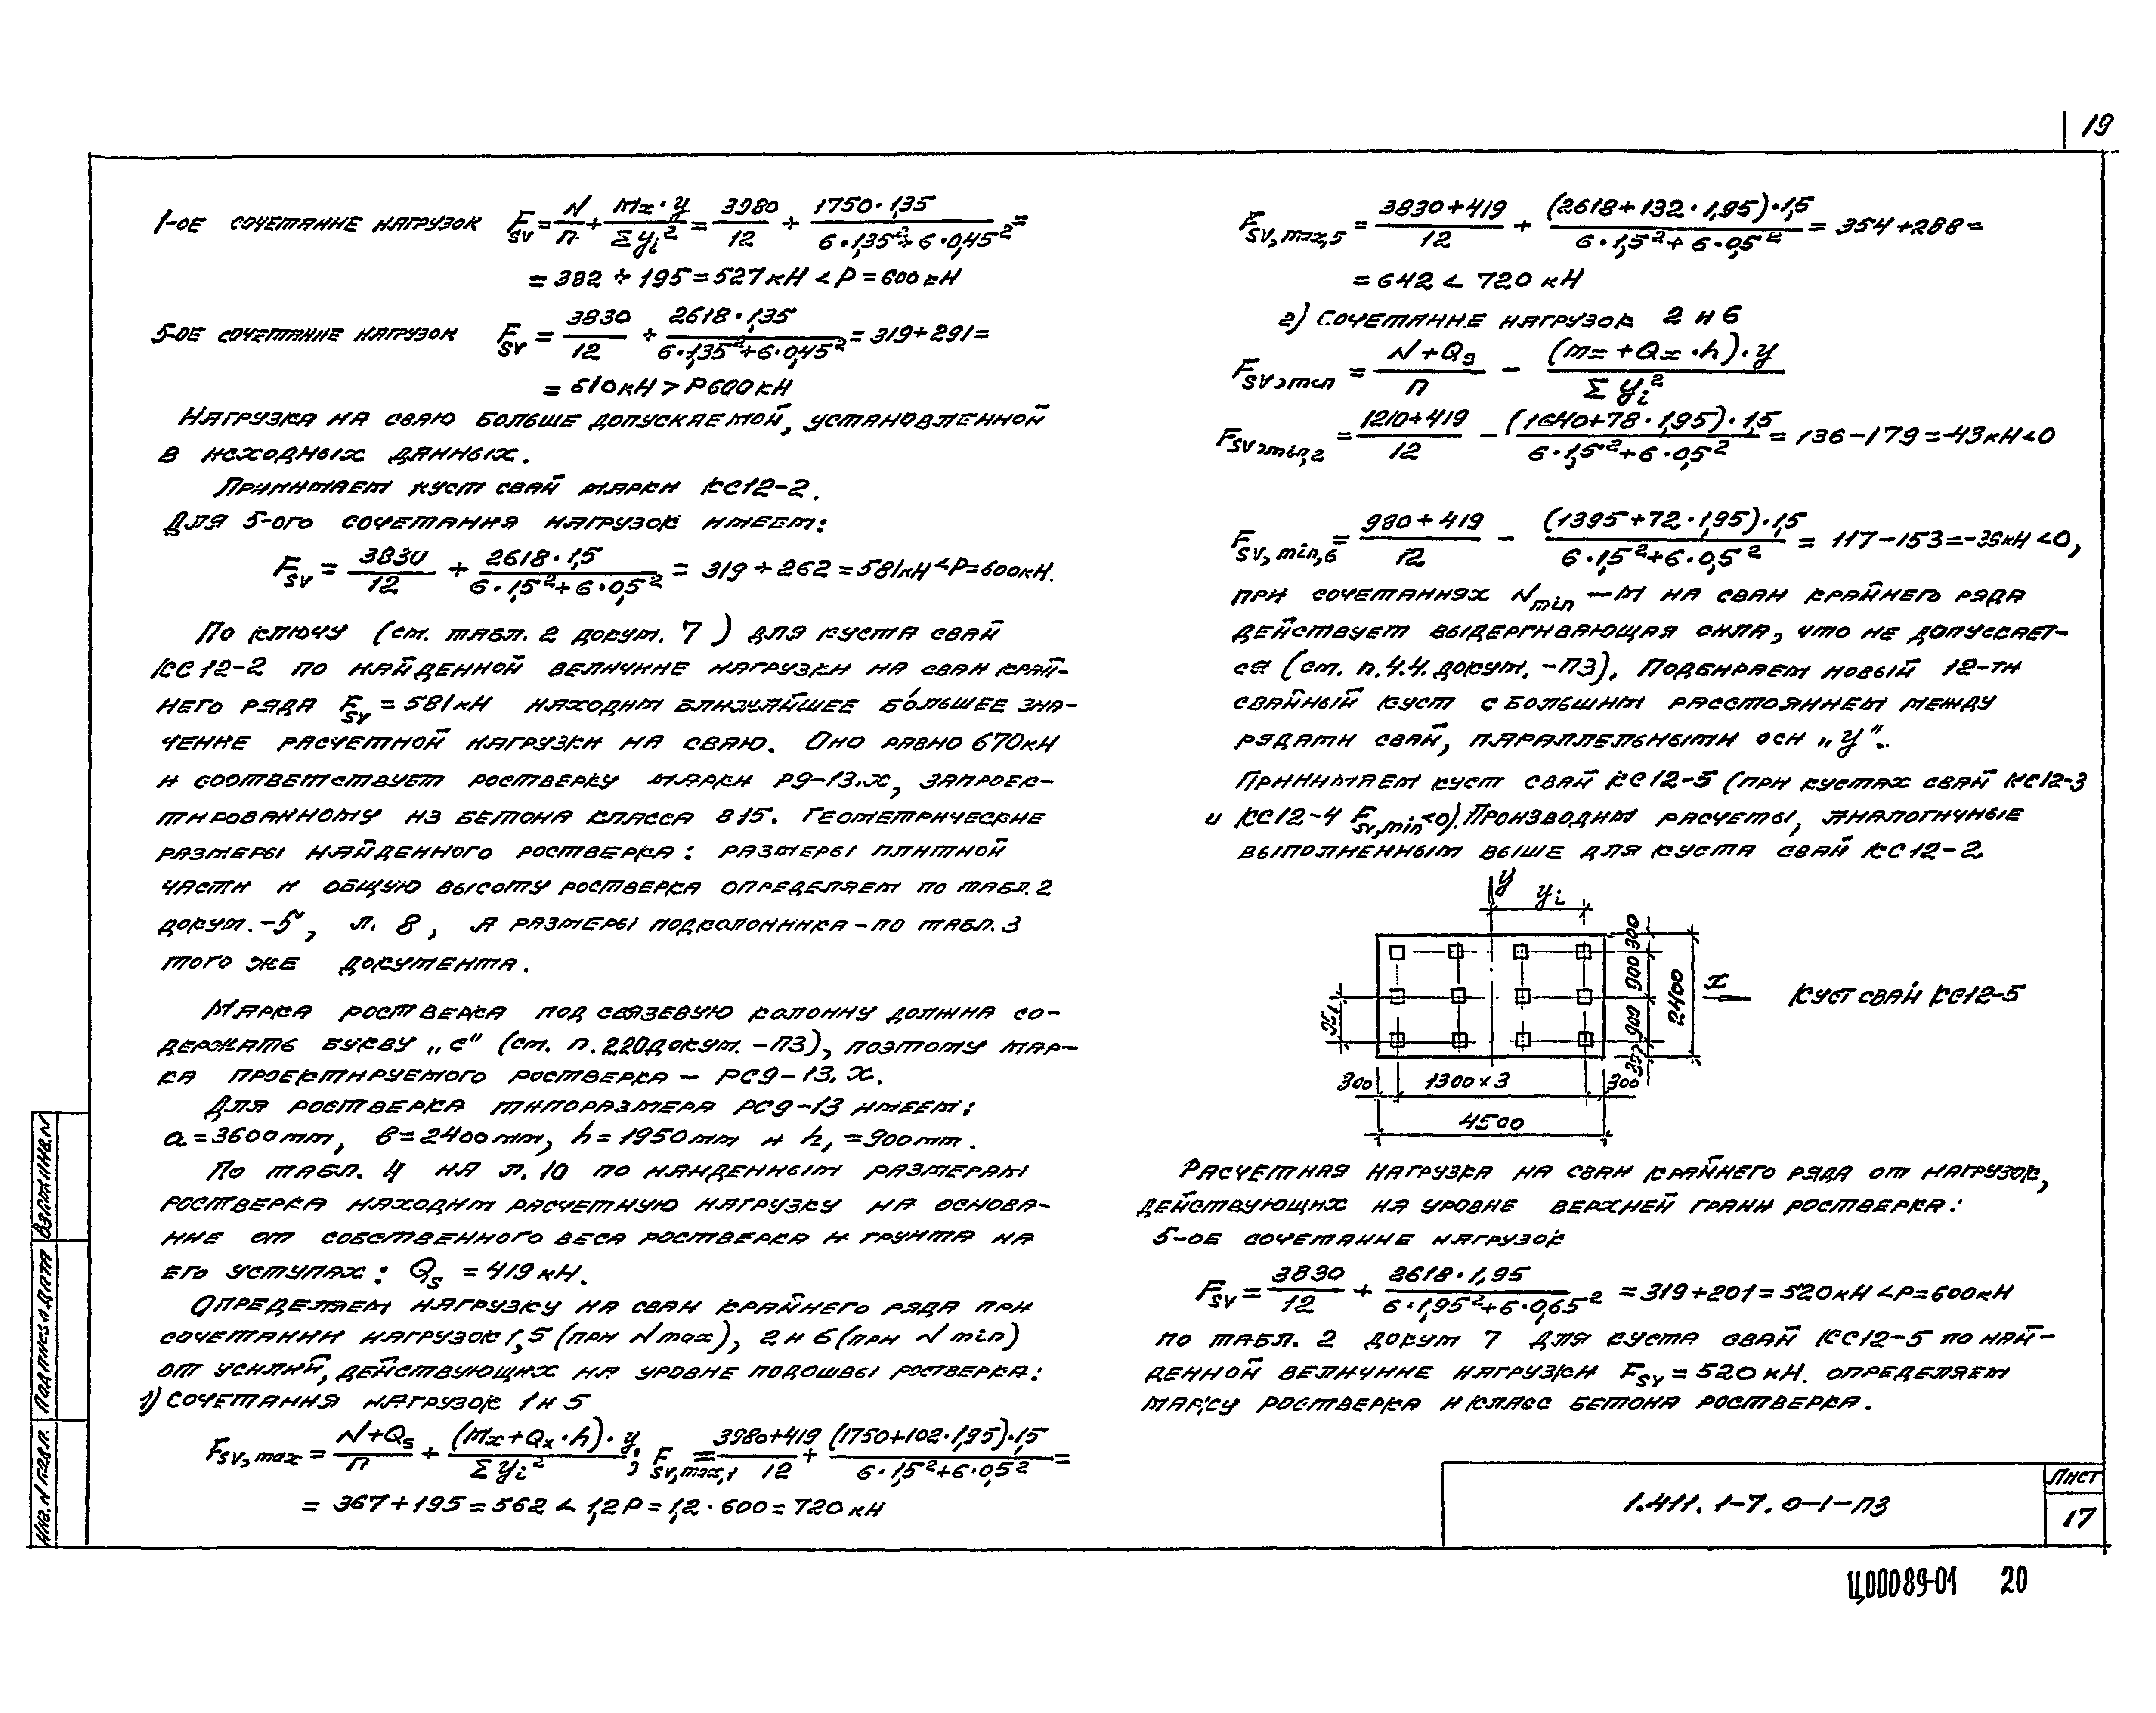 19
1-ое сочетание нагрузок F_sv = N/n + Mx·y/Σy_i² = 3980/12 + 1750·1,35/(6·1,35²+6·0,45²) =
= 332 + 195 = 527 кН < P = 600 кН
5-ое сочетание нагрузок F_sv = 3830/12 + 2618·1,35/(6·1,35²+6·0,45²) = 319+291=
= 610 кН > P 600 кН
Нагрузка на сваю больше допускаемой, установленной
в исходных данных.
Принимаем куст свай марки КС12-2.
Для 5-ого сочетания нагрузок имеем:
F_sv = 3830/12 + 2618·1,5/(6·1,5²+6·0,5²) = 319 + 262 = 581 кН < P = 600 кН.
По ключу (см. табл. 2 докум. 7) для куста свай
КС12-2 по найденной величине нагрузки на сваи край-
него ряда F_sv = 581 кН находим ближайшее бо́льшее зна-
чение расчетной нагрузки на сваю. Оно равно 670 кН
и соответствует ростверку марки Р9-13.х, запроек-
тированному из бетона класса В15. Геометрические
размеры найденного ростверка: размеры плитной
части и общую высоту ростверка определяем по табл. 2
докум. -5, л. 8, а размеры подколонника - по табл. 3
того же документа.
Марка ростверка под связевую колонну должна со-
держать букву „с" (см. п. 2.20 докум. -ПЗ), поэтому мар-
ка проектируемого ростверка - РС9-13.х.
Для ростверка типоразмера РС9-13 имеем:
a = 3600 мм, в = 2400 мм, h = 1950 мм и h₁ = 900 мм.
По табл. 4 на л. 10 по найденным размерам
ростверка находим расчетную нагрузку на основа-
ние от собственного веса ростверка и грунта на
его уступах: Q_s = 419 кН.
Определяем нагрузку на сваи крайнего ряда при
сочетании нагрузок 1,5 (при N max), 2 и 6 (при N min)
от усилий, действующих на уровне подошвы ростверка:
1) Сочетания нагрузок 1 и 5
F_sv,max = (N+Q_s)/n + (Mx+Qx·h)·y/Σy_i²; F_sv,max,1 = (3980+419)/12 + (1750+102·1,95)·1,5/(6·1,5²+6·0,5²) =
= 367+195 = 562 < 1,2P = 1,2·600 = 720 кН
F_sv,max,5 = (3830+419)/12 + (2618+132·1,95)·1,5/(6·1,5²+6·0,5²) = 354+288=
= 642 < 720 кН
2) Сочетание нагрузок 2 и 6
F_sv,min = (N+Q_s)/n - (Mx+Qx·h)·y/Σy_i²
F_sv,min,2 = (1210+419)/12 - (1640+78·1,95)·1,5/(6·1,5²+6·0,5²) = 136-179 = -43 кН < 0
F_sv,min,6 = (980+419)/12 - (1395+72·1,95)·1,5/(6·1,5²+6·0,5²) = 117-153 = -36 кН < 0,
при сочетаниях N_min - M на сваи крайнего ряда
действует выдергивающая сила, что не допускает-
ся (см. п. 4.4. докум. -ПЗ). Подбираем новый 12-ти
свайный куст с большим расстоянием между
рядами свай, параллельными оси „y".
Принимаем куст свай КС12-5 (при кустах свай КС12-3
и КС12-4 F_sv,min<0). Производим расчеты, аналогичные
выполненным выше для куста свай КС12-2
y
y_i
300
900
900
300
2400
x
300
1300х3
300
4500
Куст свай КС12-5
Расчетная нагрузка на сваи крайнего ряда от нагрузок,
действующих на уровне верхней грани ростверка:
5-ое сочетание нагрузок
F_sv = 3830/12 + 2618·1,95/(6·1,95²+6·0,65²) = 319+201 = 520 кН < P = 600 кН
по табл. 2 докум 7 для куста свай КС12-5 по най-
денной величине нагрузки F_sv = 520 кН. определяем
марку ростверка и класс бетона ростверка.
1.411.1-7.0-1-ПЗ
Лист
17
Инв. N подл. Подпись и дата Взам. инв. N
Ц00089-01 20